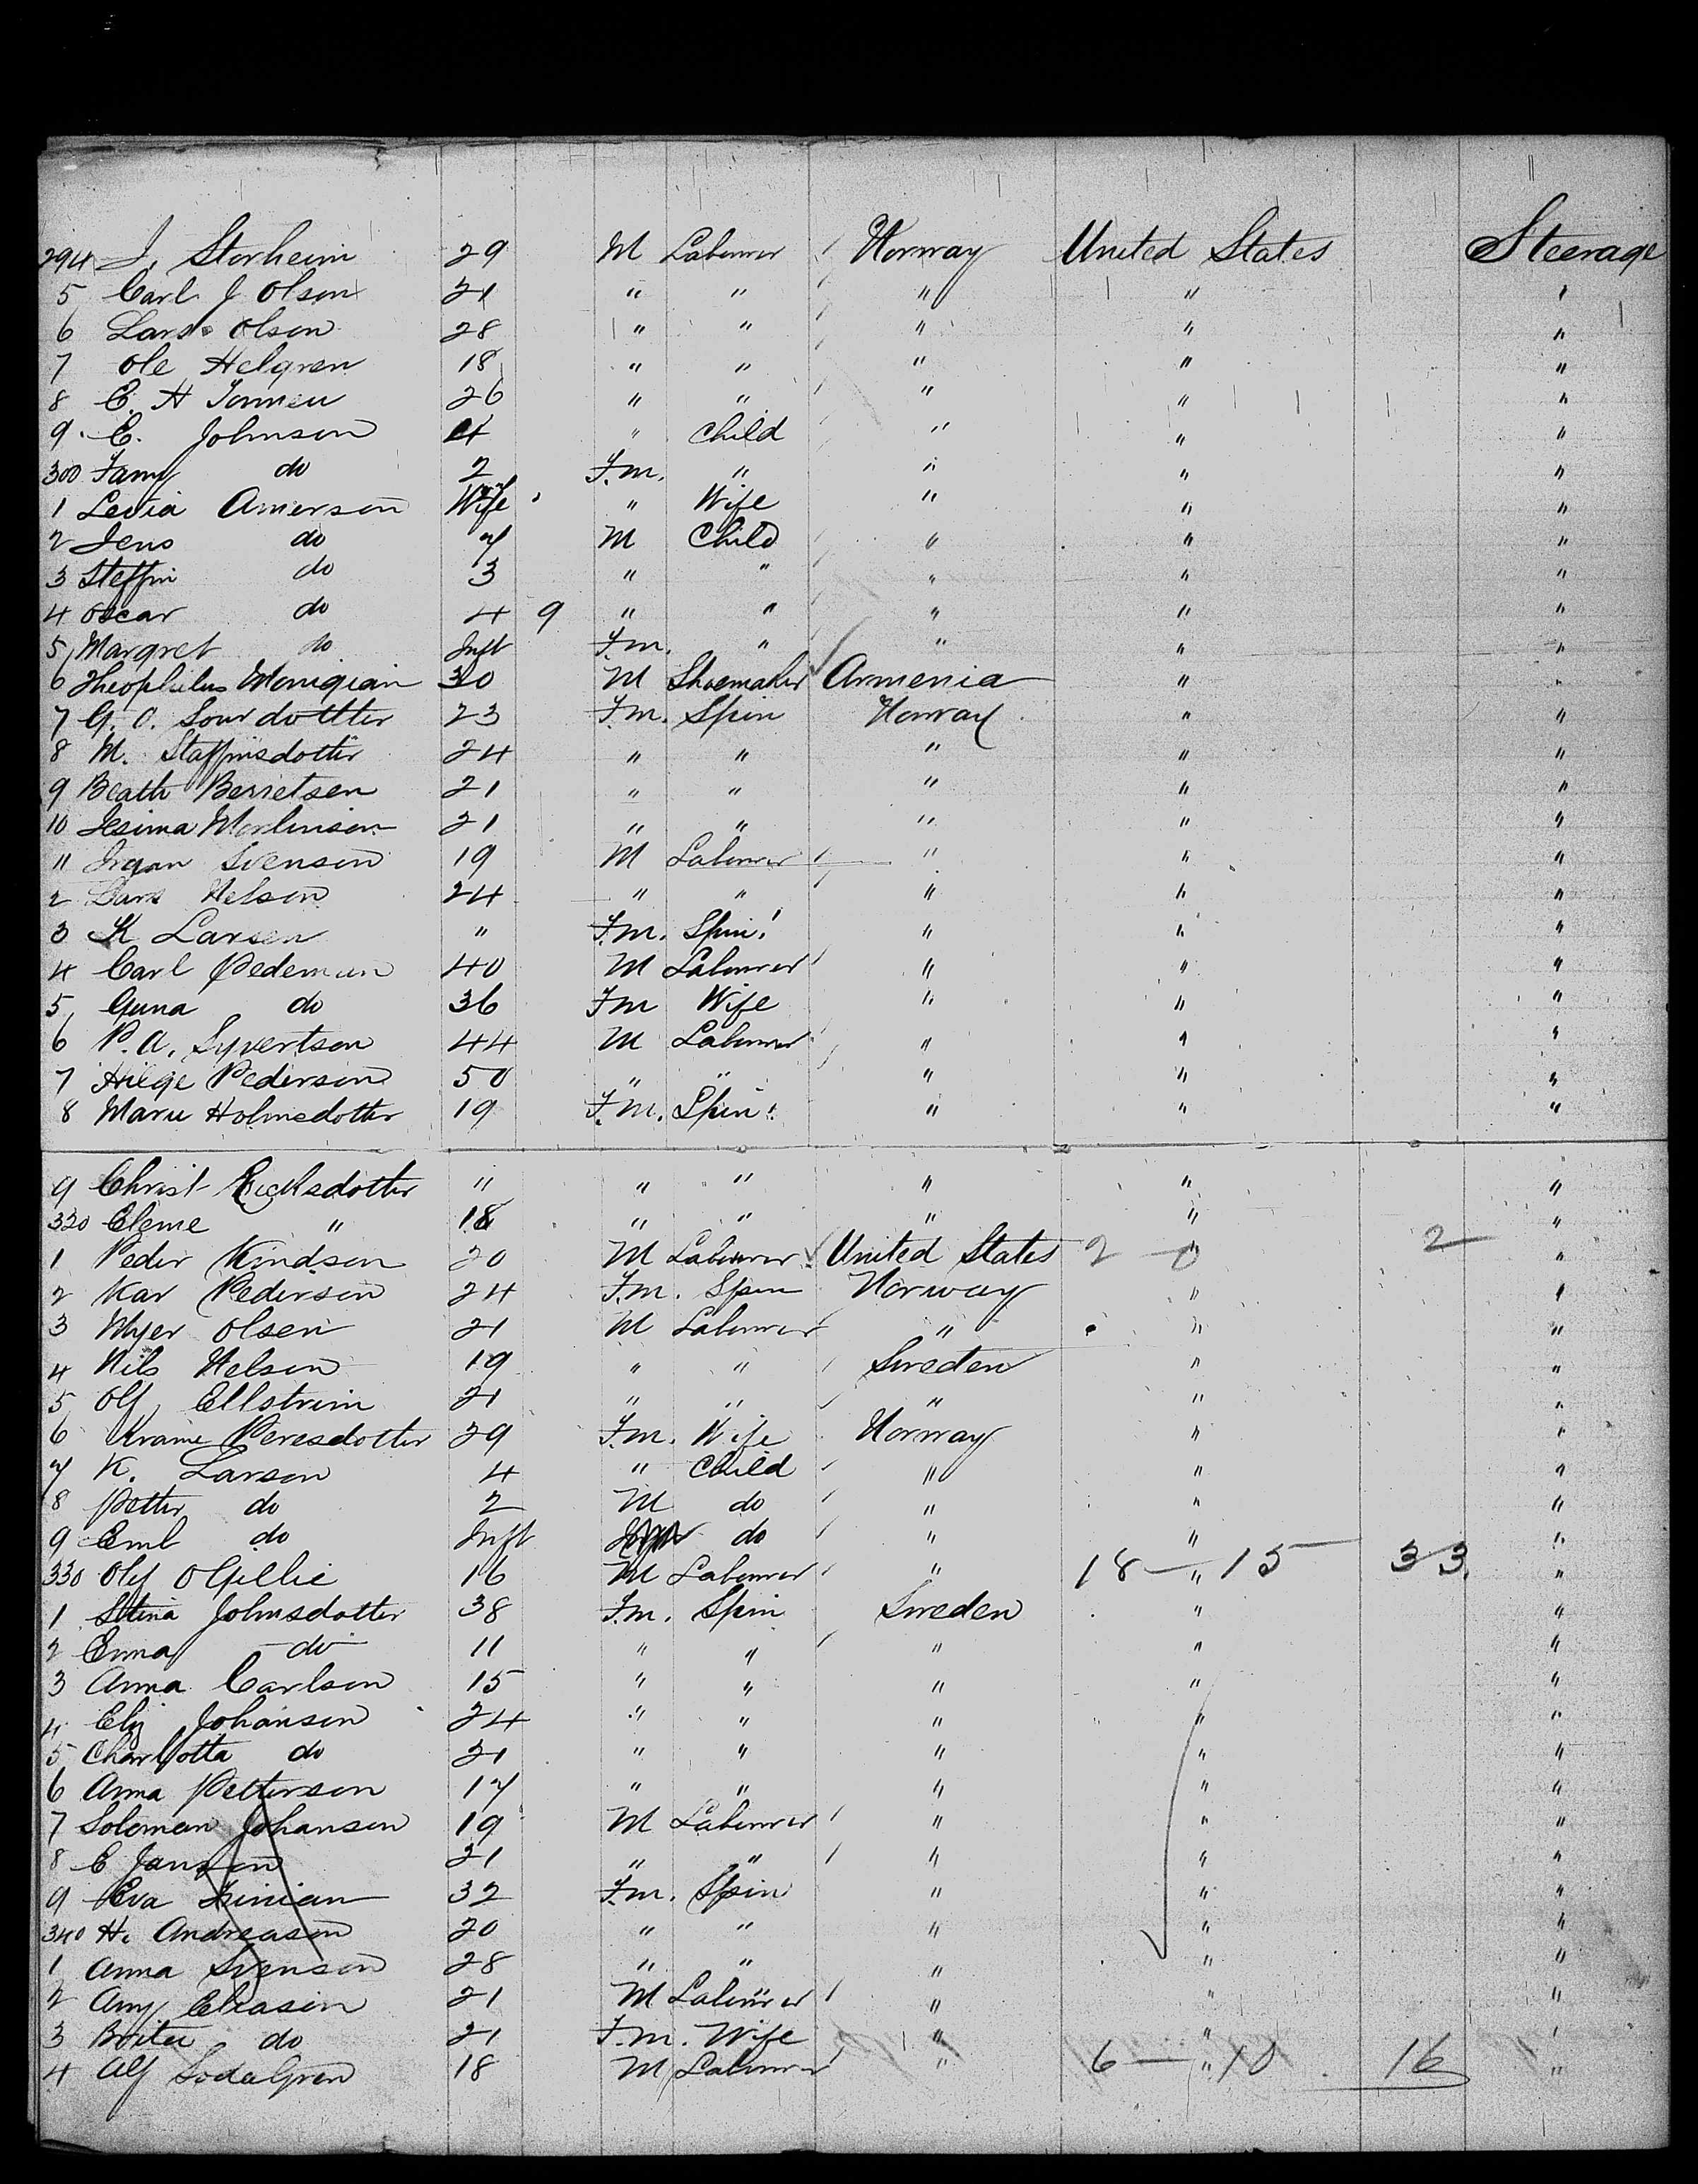 294 J. Storheim 29 M Labourer Norway United States Steerage
5 Carl J Olson 21 " " " " "
6 Lars Olson 28 " " " " "
7 Ole Helgren 18 " " " " "
8 C. H 26 " " " " "
9 C. Johnson 4 " Child " " "
300 Fany do 2 F.m. " " " "
1 Levia Amerson Wife " Wife " " "
2 Jens do 7 M Child " " "
3 Steffin do 3 " " " " "
4 Oscar do 4 9 " " " " "
5 Margret do Inft F.m. " " " "
6 Theophilus Monigian 30 M Shoemaker Armenia " "
7 G. O. Sourdottter 23 F.m. Spin Norway " "
8 M. Staffinsdotter 24 " " " " "
9 Beath Berretsen 21 " " " " "
10 Jesima 21 " " " " "
11 Svenson 19 M Labourer " " "
2 Lars Nelson 24 " " " " "
3 K Larsen " F.m. Spin " " "
4 Carl Pedeman 40 M Labourer " " "
5 Guna do 36 Fm Wife " " "
6 P. A. Syvertson 44 M Labourer " " "
7 Hilge Pederson 50 " " " " "
8 Marie Holmsdotter 19 F.m. Spin " " "
9 Christ " " " " " "
320 Eleme " 18 " " " " "
1 Peder Kindson 20 M Labourer United States 2 — 0 " 2 "
2 Kar Pederson 24 F.m. Spin Norway " "
3 Myer Olsen 21 M Labourer " " "
4 Nils Nelson 19 " " Sweden " "
5 Olf Ellstrim 21 " " " " "
6 Peresdotter 29 F.m. Wife Norway " "
7 K. Larson 4 " Child " " "
8 Petter do 2 M do " " "
9 Eml do Inft do " " "
330 Olf OGillie 16 M Labourer " 18 — " 15 33 "
1 Stina Johnsdotter 38 F.m. Spin Sweden " "
2 Enna do 11 " " " " "
3 Anna Carlson 15 " " " " "
4 Eliz Johanson 24 " " " " "
5 Charllotta do 21 " " " " "
6 Anna Petterson 17 " " " " "
7 Soloman Johanson 19 M Labourer " " "
8 C Janson 21 " " " " "
9 Eva 32 F.m. Spin " " "
340 H. Andreason 20 " " " " "
1 Anna Svenson 28 " " " " "
2 Any Eliasin 21 M Labourer " " "
3 do 21 F.m. Wife " " "
4 Alf SodalGren 18 M Labourer " 6 — " 10 16 "